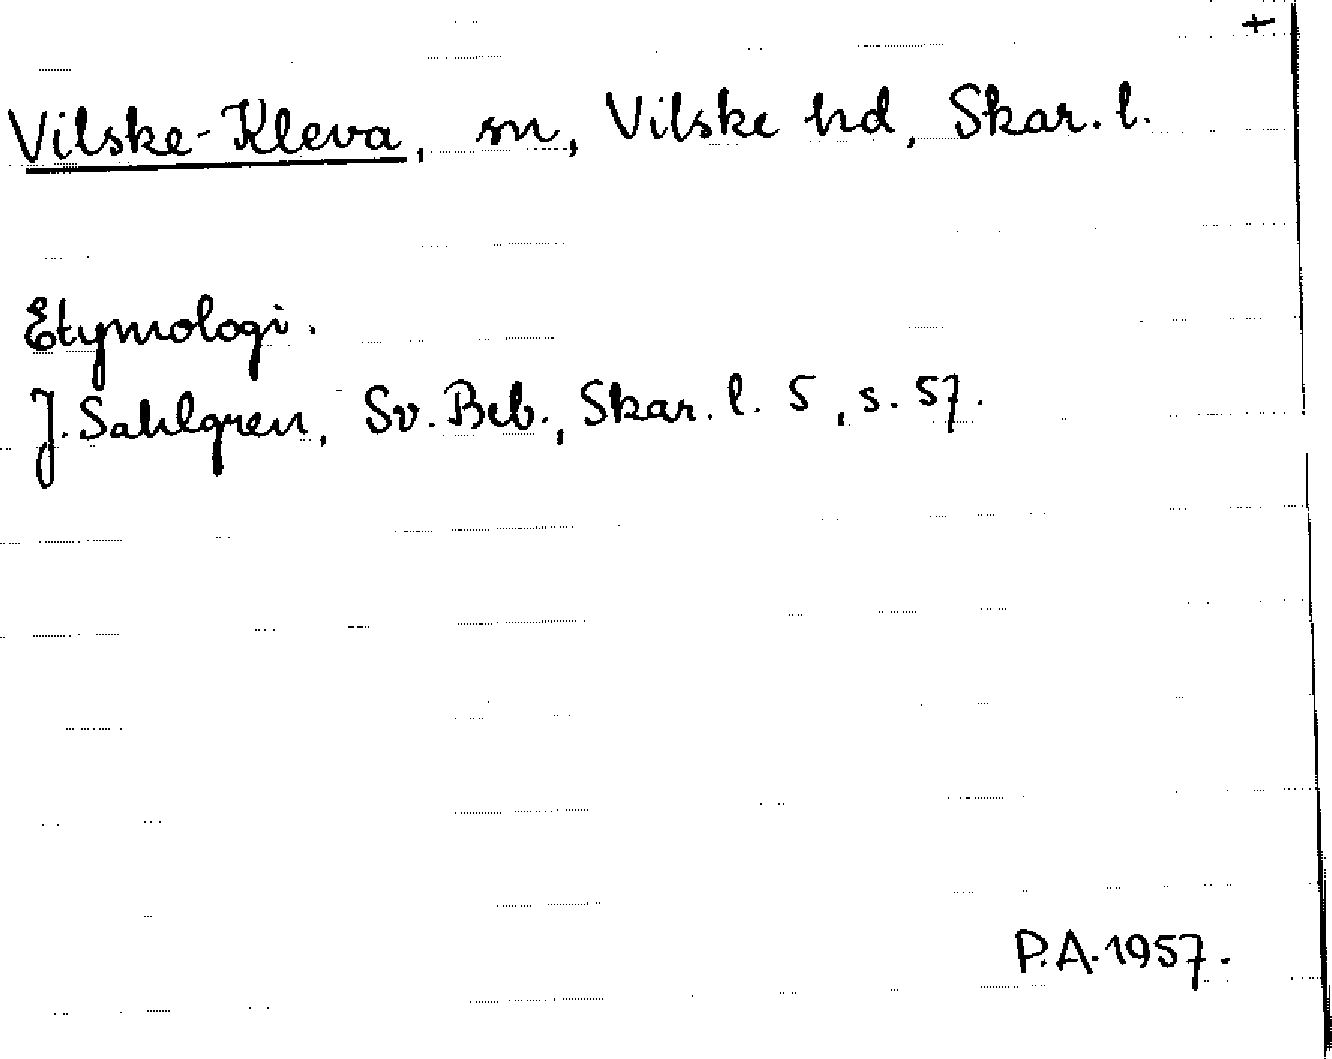 +
Vilske-Kleva, sn, Vilske hd, Skar. l.
Etymologi.
J. Sahlgren, Sv. Beb., Skar. l. 5, s. 57.
P.A. 1957.